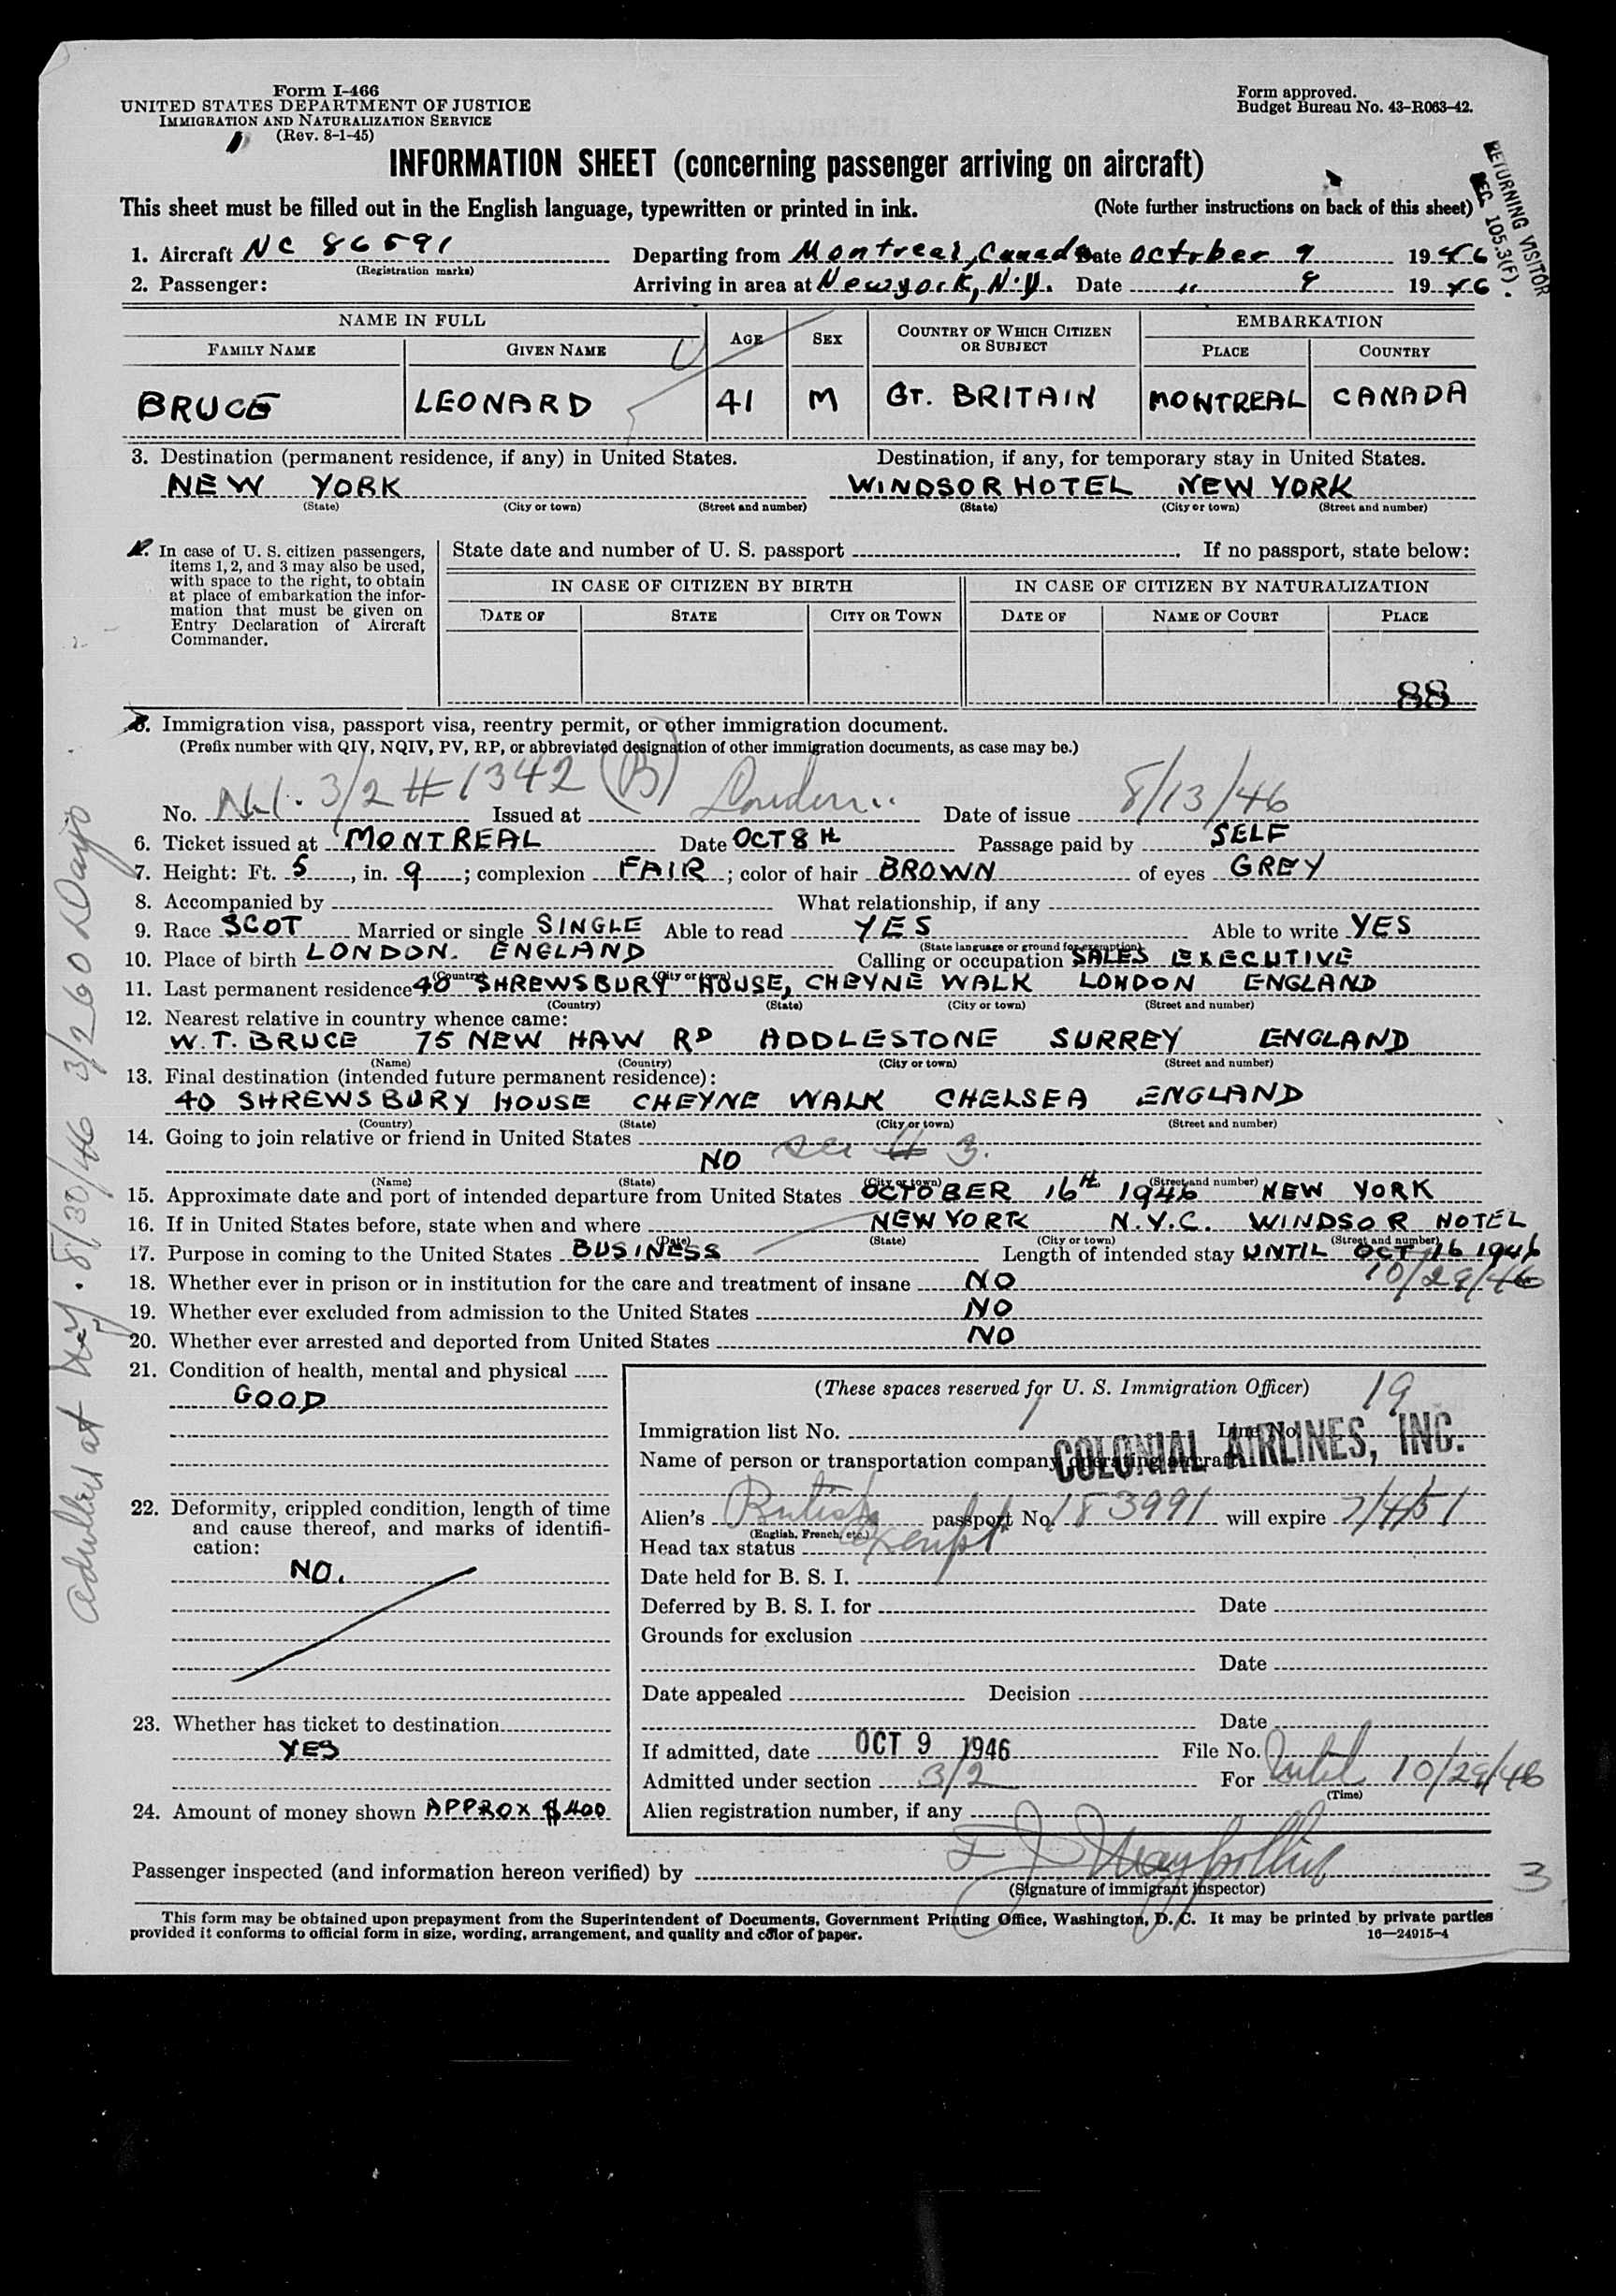 Form I-466
UNITED STATES DEPARTMENT OF JUSTICE
IMMIGRATION AND NATURALIZATION SERVICE
(Rev. 8-1-45)
Form approved.
Budget Bureau No. 43-R063-42.
INFORMATION SHEET (concerning passenger arriving on aircraft)
RETURNING VISITOR
SEC 105.3(F).
This sheet must be filled out in the English language, typewritten or printed in ink. (Note further instructions on back of this sheet)
1. Aircraft NC 86591 Departing from Montreal, Canada Date October 9 1946
(Registration marks)
2. Passenger: Arriving in area at New york, N.Y. Date " 9 1946
NAME IN FULL AGE SEX COUNTRY OF WHICH CITIZEN OR SUBJECT EMBARKATION
FAMILY NAME GIVEN NAME PLACE COUNTRY
BRUCE LEONARD 41 M GT. BRITAIN MONTREAL CANADA
3. Destination (permanent residence, if any) in United States. Destination, if any, for temporary stay in United States.
NEW YORK WINDSOR HOTEL NEW YORK
(State) (City or town) (Street and number) (State) (City or town) (Street and number)
4. In case of U. S. citizen passengers, items 1, 2, and 3 may also be used, with space to the right, to obtain at place of embarkation the information that must be given on Entry Declaration of Aircraft Commander.
State date and number of U. S. passport If no passport, state below:
IN CASE OF CITIZEN BY BIRTH IN CASE OF CITIZEN BY NATURALIZATION
DATE OF STATE CITY OR TOWN DATE OF NAME OF COURT PLACE
88
5. Immigration visa, passport visa, reentry permit, or other immigration document.
(Prefix number with QIV, NQIV, PV, RP, or abbreviated designation of other immigration documents, as case may be.)
No. 3/2 # 1342 (B) Issued at London Date of issue 8/13/46
6. Ticket issued at MONTREAL Date OCT 8 Passage paid by SELF
7. Height: Ft. 5, in. 9; complexion FAIR; color of hair BROWN of eyes GREY
8. Accompanied by What relationship, if any
9. Race SCOT Married or single SINGLE Able to read YES Able to write YES
(State language or ground for exemption)
10. Place of birth LONDON. ENGLAND Calling or occupation SALES EXECUTIVE
(Country) (City or town)
11. Last permanent residence 40 SHREWSBURY HOUSE, CHEYNE WALK LONDON ENGLAND
(Country) (State) (City or town) (Street and number)
12. Nearest relative in country whence came:
W.T. BRUCE 75 NEW HAW RD ADDLESTONE SURREY ENGLAND
(Name) (Country) (City or town) (Street and number)
13. Final destination (intended future permanent residence):
40 SHREWSBURY HOUSE CHEYNE WALK CHELSEA ENGLAND
(Country) (State) (City or town) (Street and number)
14. Going to join relative or friend in United States
NO see # 3.
(Name) (State) (City or town) (Street and number)
15. Approximate date and port of intended departure from United States OCTOBER 16th 1946 NEW YORK
16. If in United States before, state when and where NEW YORK N.Y.C. WINDSOR HOTEL
(Date) (State) (City or town) (Street and number)
17. Purpose in coming to the United States BUSINESS Length of intended stay UNTIL OCT 16 1946
10/29/46
18. Whether ever in prison or in institution for the care and treatment of insane NO
19. Whether ever excluded from admission to the United States NO
20. Whether ever arrested and deported from United States NO
21. Condition of health, mental and physical
GOOD
22. Deformity, crippled condition, length of time and cause thereof, and marks of identification:
NO.
23. Whether has ticket to destination
YES
24. Amount of money shown APPROX $400
(These spaces reserved for U. S. Immigration Officer)
Immigration list No. 1 Line No. 19
Name of person or transportation company operating aircraft
COLONIAL AIRLINES, INC.
Alien's British passport No. 183991 will expire 7/4/51
(English, French, etc.)
Head tax status exempt
Date held for B. S. I.
Deferred by B. S. I. for Date
Grounds for exclusion
Date
Date appealed Decision
Date
If admitted, date OCT 9 1946 File No.
Admitted under section 3/2 For until 10/29/46
(Time)
Alien registration number, if any
Passenger inspected (and information hereon verified) by
(Signature of immigrant inspector)
3
This form may be obtained upon prepayment from the Superintendent of Documents, Government Printing Office, Washington, D. C. It may be printed by private parties
provided it conforms to official form in size, wording, arrangement, and quality and color of paper. 16—24915-4
admitted at NY. 8/30/46 3/2 60 Days